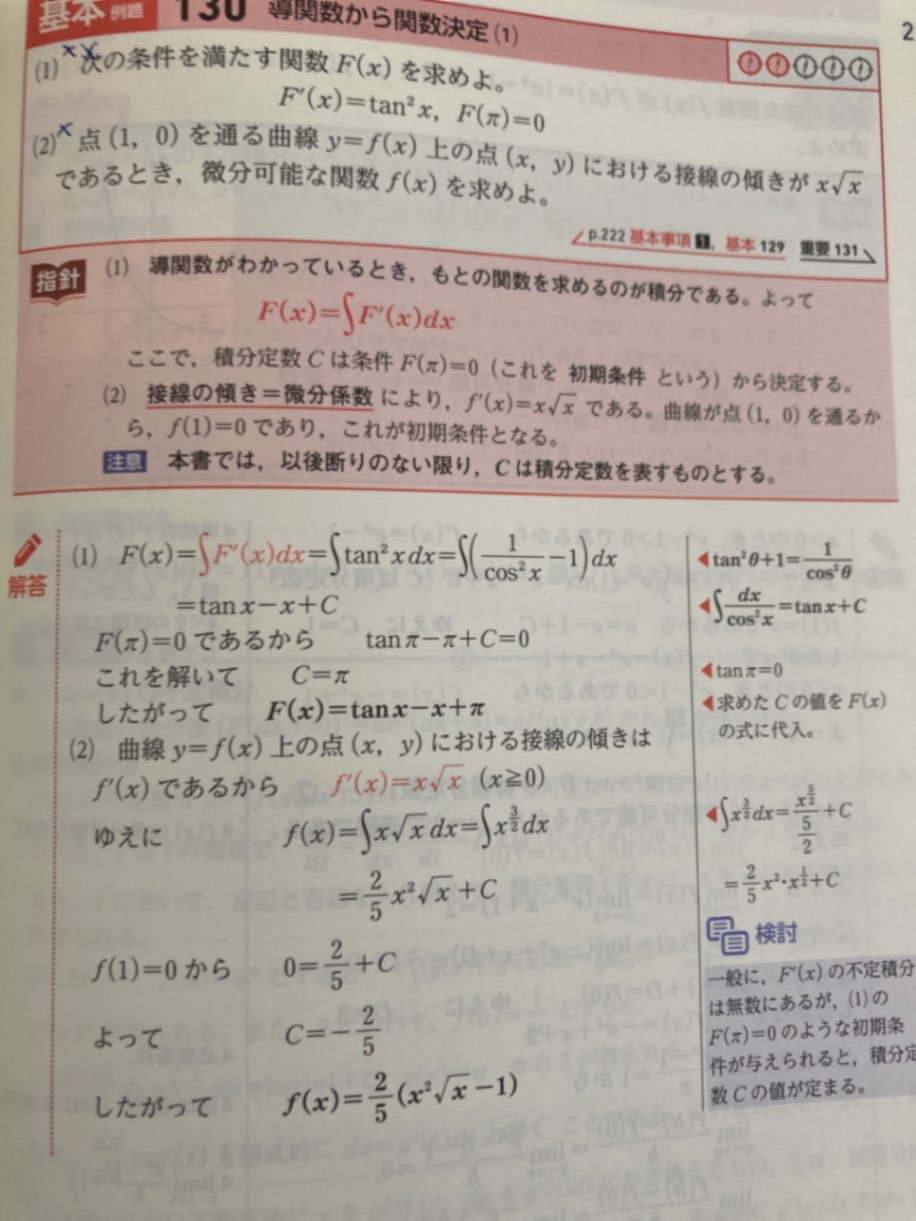 基本 例題 130 導関数から関数決定 (1)
2
(1) 次の条件を満たす関数 F(x) を求めよ。
F′(x)=tan²x, F(π)=0
(2) 点 (1, 0) を通る曲線 y=f(x) 上の点 (x, y) における接線の傾きが x√x
であるとき,微分可能な関数 f(x) を求めよ。
p.222 基本事項 1, 基本 129 重要 131
指針
(1) 導関数がわかっているとき,もとの関数を求めるのが積分である。よって
F(x)=∫F′(x)dx
ここで,積分定数 C は条件 F(π)=0(これを 初期条件 という)から決定する。
(2) 接線の傾き=微分係数 により,f′(x)=x√x である。曲線が点 (1, 0) を通るか
ら,f(1)=0 であり,これが初期条件となる。
注意 本書では,以後断りのない限り,C は積分定数を表すものとする。
解答
(1) F(x)=∫F′(x)dx=∫tan²x dx=∫(1/cos²x −1)dx
=tan x−x+C
F(π)=0 であるから tan π−π+C=0
これを解いて C=π
したがって F(x)=tan x−x+π
(2) 曲線 y=f(x) 上の点 (x, y) における接線の傾きは
f′(x) であるから f′(x)=x√x (x≧0)
ゆえに f(x)=∫x√x dx=∫x^(3/2) dx
=2/5 x²√x+C
f(1)=0 から 0=2/5+C
よって C=−2/5
したがって f(x)=2/5(x²√x−1)
◀tan²θ+1=1/cos²θ
◀∫dx/cos²x=tan x+C
◀tan π=0
◀求めた C の値を F(x)
の式に代入。
◀∫x^(3/2) dx=x^(5/2)/(5/2)+C
=2/5 x²・x^(1/2)+C
検討
一般に,F′(x) の不定積分
は無数にあるが,(1) の
F(π)=0 のような初期条
件が与えられると,積分定
数 C の値が定まる。